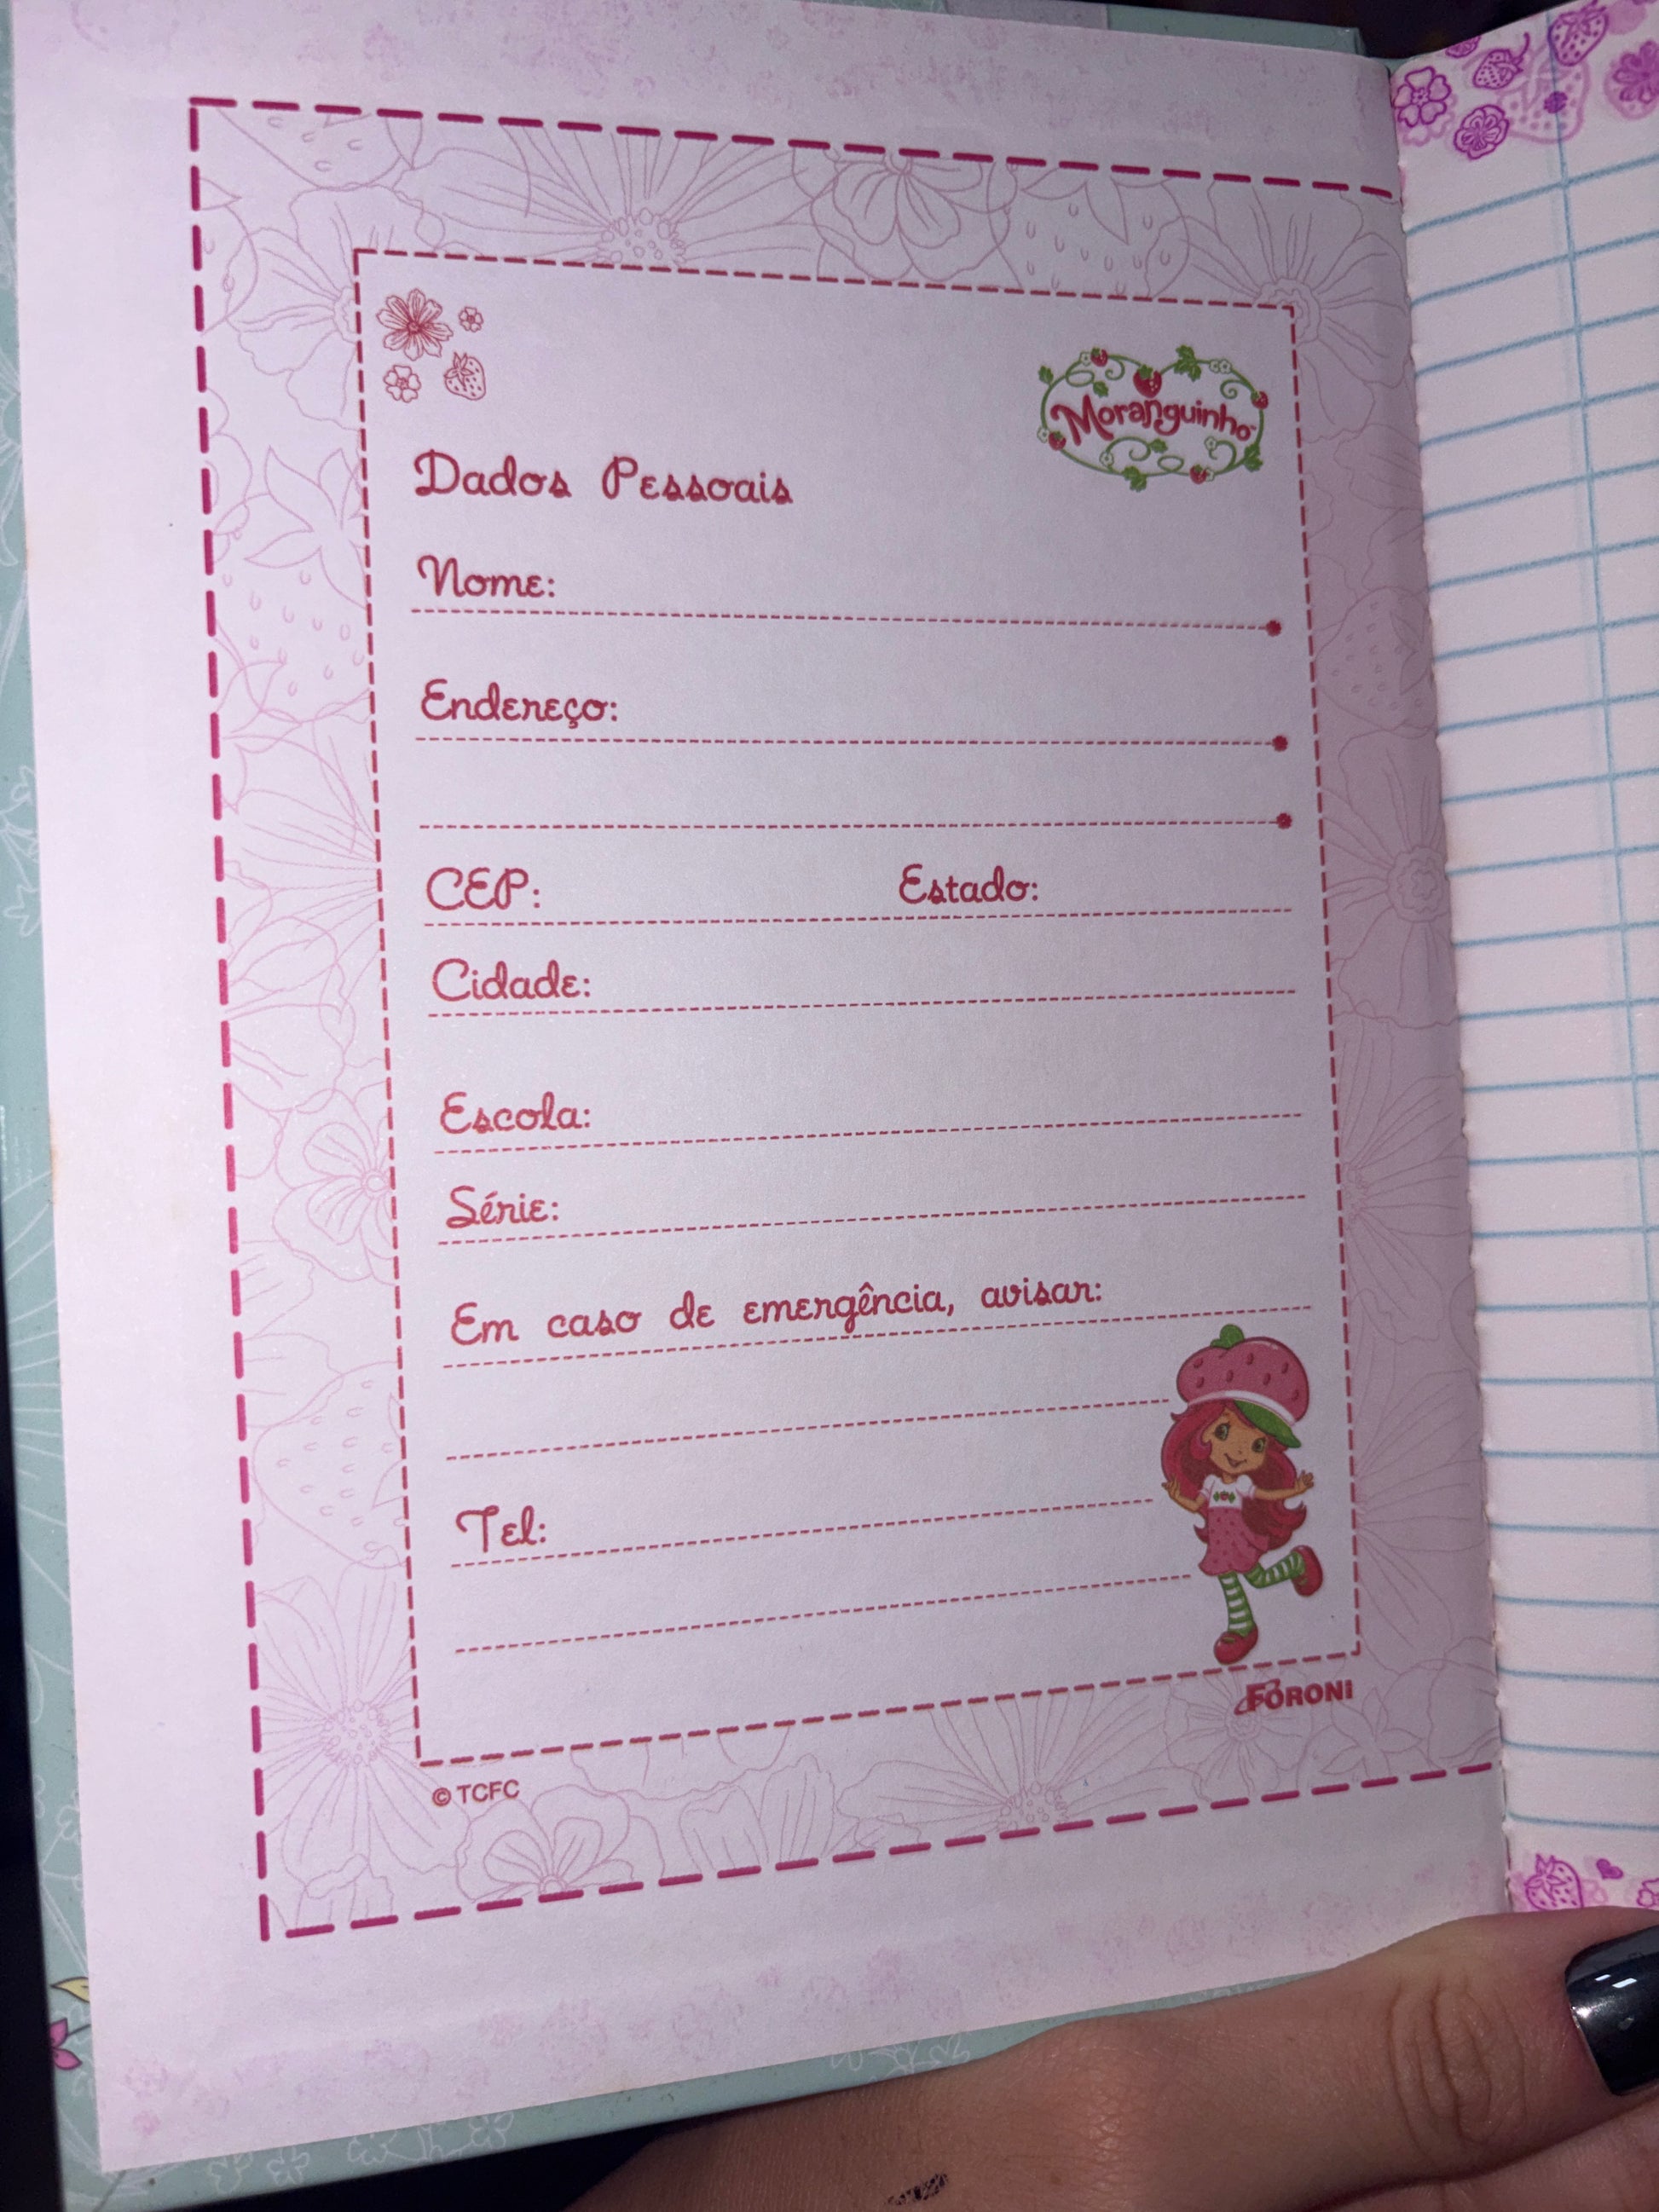 Moranguinho
Dados Pessoais
Nome:
Endereço:
CEP: Estado:
Cidade:
Escola:
Série:
Em caso de emergência, avisar:
Tel:
FORONI
© TCFC